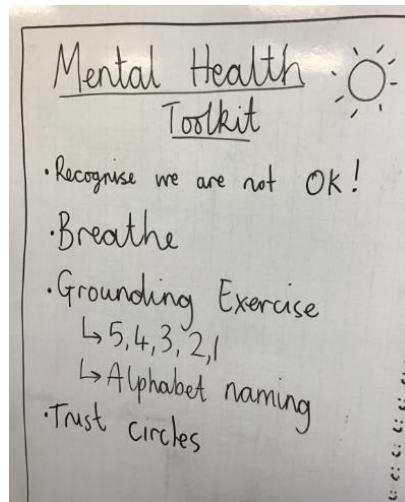 Mental Health
Toolkit
• Recognise we are not OK!
• Breathe
• Grounding Exercise
↳ 5, 4, 3, 2, 1
↳ Alphabet naming
• Trust circles